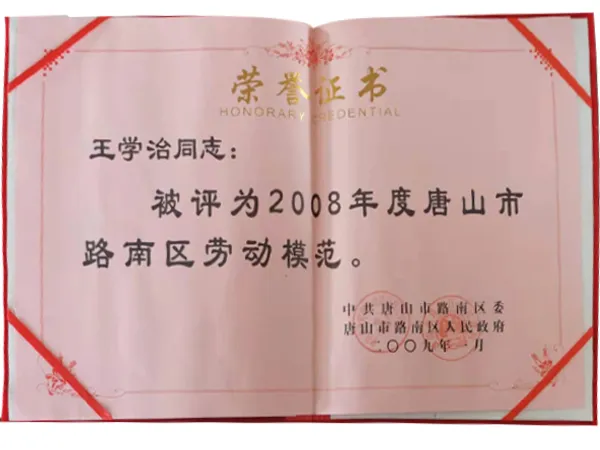 荣誉证书
HONORARY CREDENTIAL
王学治同志：
被评为2008年度唐山市
路南区劳动模范。
中共唐山市路南区委
唐山市路南区人民政府
二〇〇九年一月